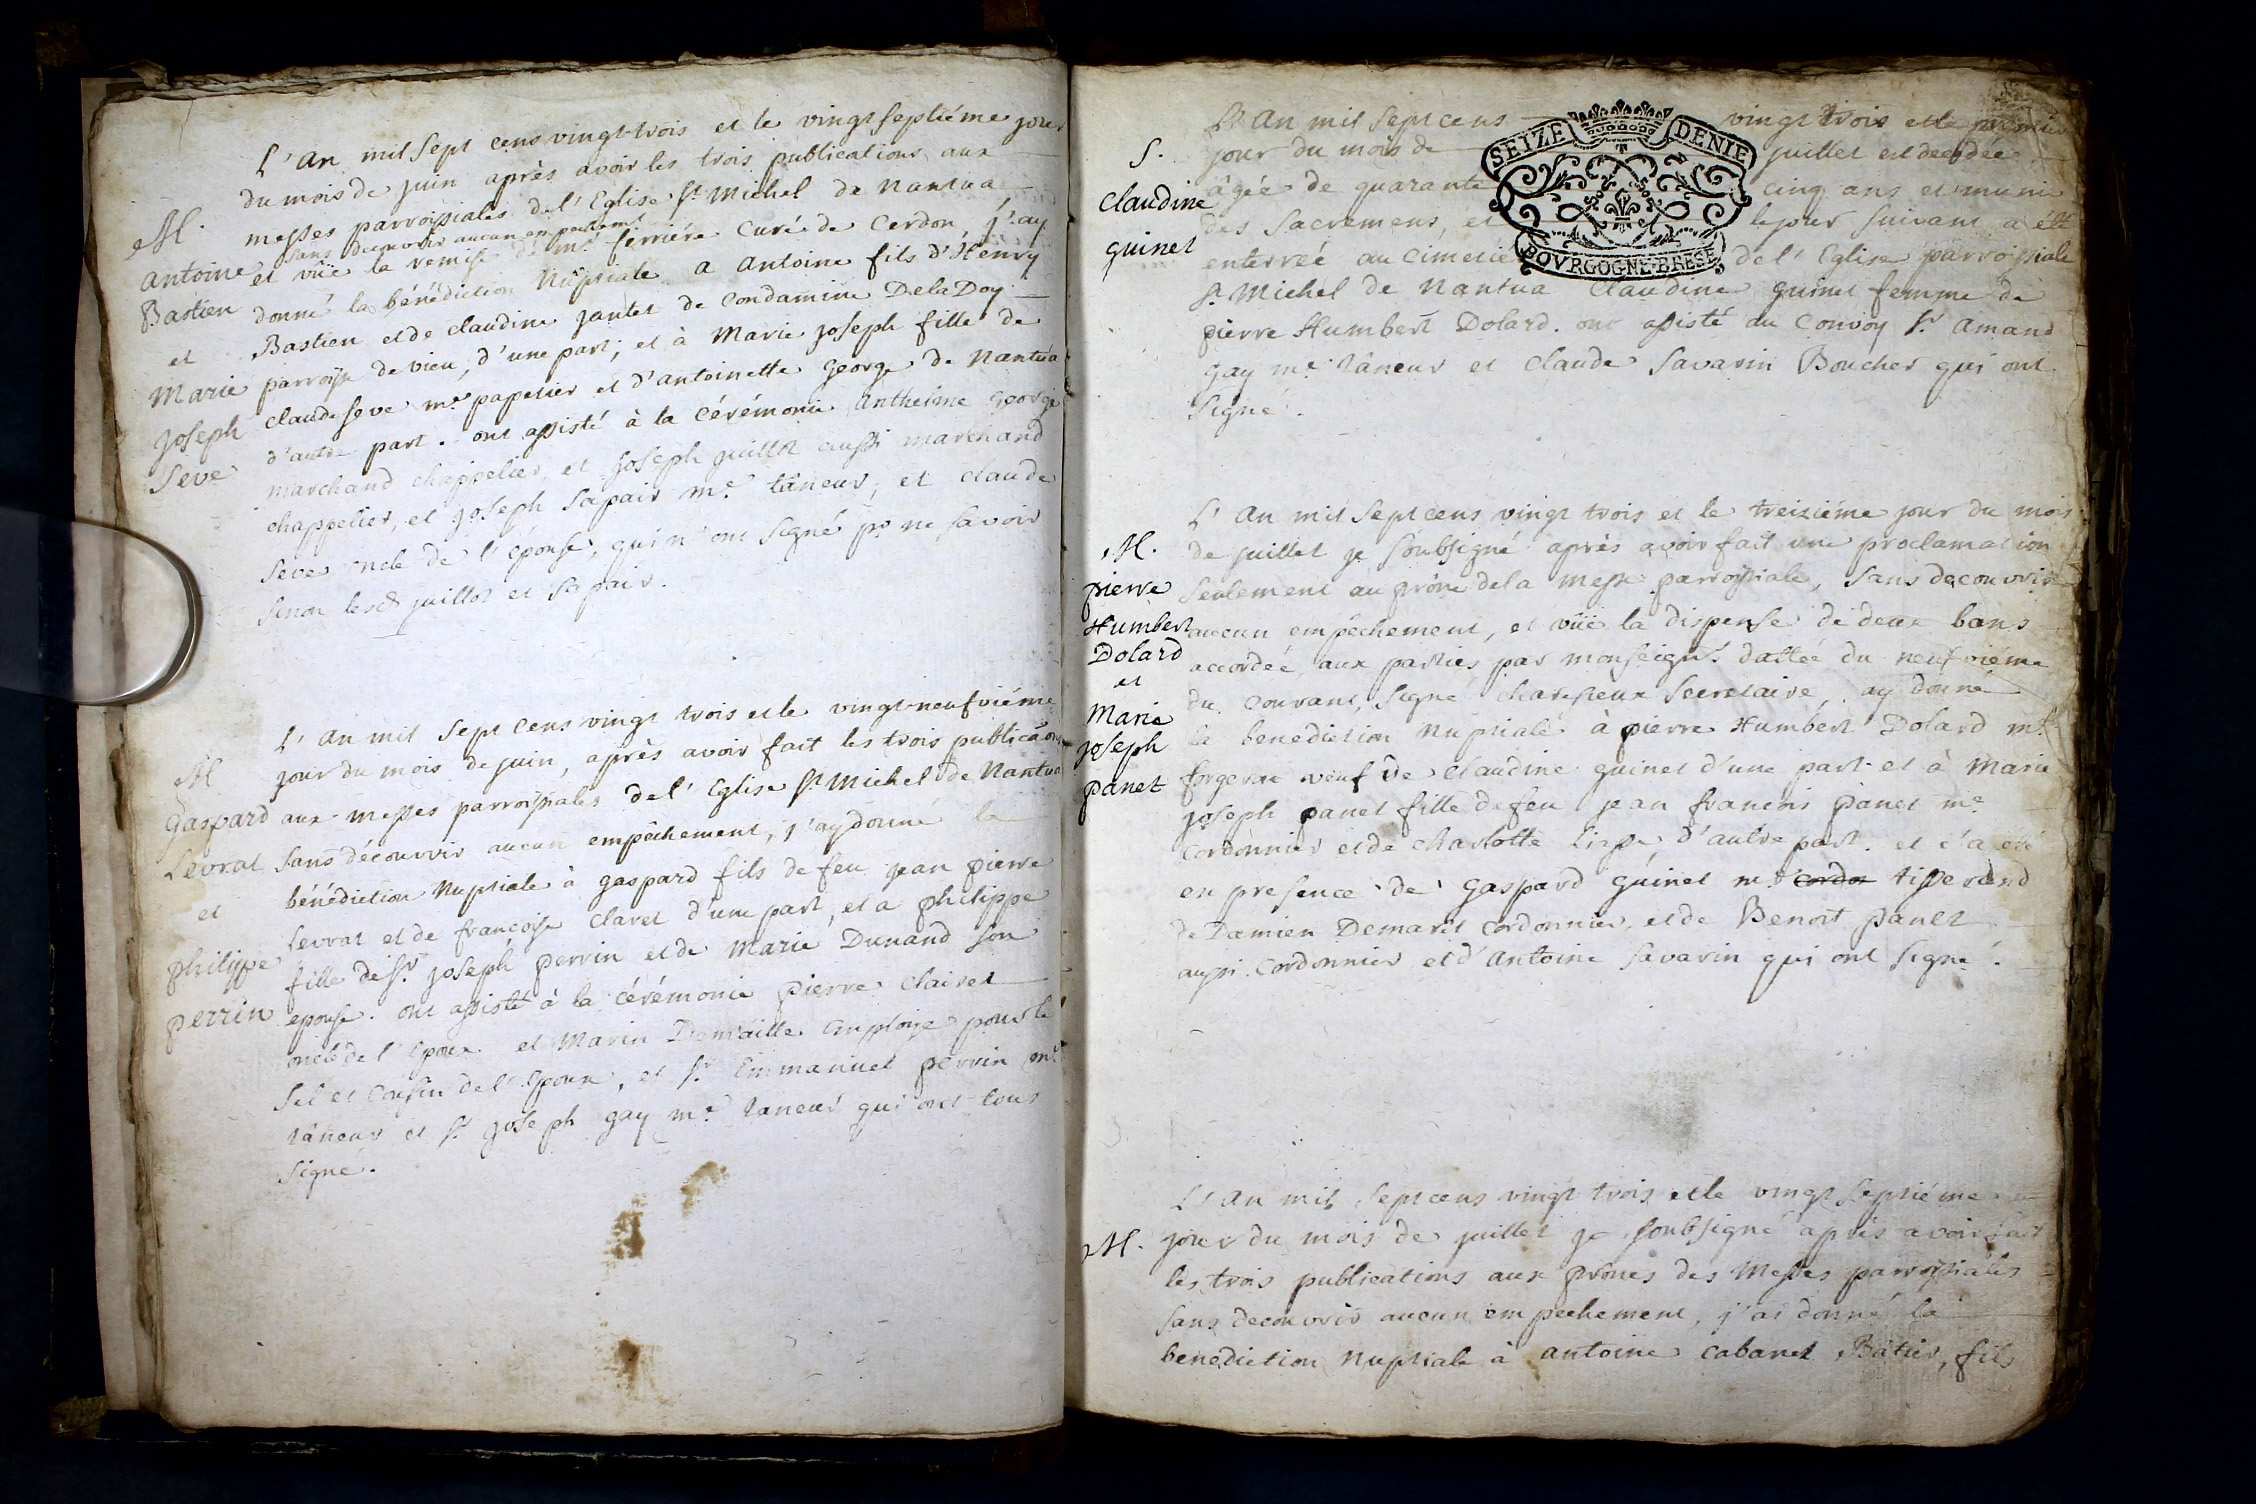 L'An mil Sept cens vingt-trois et le vingt septiéme jour
du mois de juin après avoir les trois publications aux
M. messes parroissiales de l'Eglise St Michel de Nantua
sans decouvrir aucun empechement
Antoine et vüe la remise de mr. ferriére Curé de Cerdon, j'ay
Bastien donné la bénédiction Nuptiale a Antoine fils d'Henry
et Bastien et de Claudine jantet de Condamine De la Doy
Marie parroisse de vieu, d'une part; et à Marie joseph fille de
joseph claude seve me. papetier et d'antoinette george de Nantua
Seve d'autre part. ont assisté à la Cérémonie Anthelme george
marchand chappelier, et joseph juillot aussi marchand
chappelier, et joseph Sapair me. tâneur, et claude
Seve oncle de l'épouse, qui n'ont Signé pr ne savoir
sinon lesd juillot et Sapair.
L'An mil Sept cens vingt trois et le vingt-neufviéme
M jour du mois de juin, après avoir fait les trois publicaõns
gaspard aux messes parroissiales de l'Eglise St Michel de Nantua
Levrat sans découvrir aucun empêchement, j'ay donné la
et bénédiction Nuptiale à gaspard fils de feu jean pierre
levrat et de francoise Claret d'une part, et a philippe
philippe fille de Sr joseph perrin et de Marie Dunand son
perrin epouse. ont assisté à la Cérémonie pierre Clairet
oncle de l'Epoux et Marin employe pour le
Sel et Cousin de l'Epoux, et Sr Emmanuel perrin me.
tâneur et Sr joseph gay me. taneur qui ont tous
Signé.
L'An mil Sept cens vingt trois et le premier
SEIZE DENIE
BOVRGOGNE-BRESE
S. jour du mois de juillet est decedée
Claudine âgée de quarante cinq ans et munie
des Sacremens, et le jour suivant a été
guinet enterrée au Cimetiére de l'Eglise parroissiale
St Michel de Nantua Claudine guinet femme de
pierre Humbert Dolard. ont assisté au Convoy Sr Amand
gay me tâneur et Claude Savarin Boucher qui ont
Signé.
L'An mil Sept cens vingt trois et le treiziéme jour du mois
M. de juillet je Soubsigné après avoir fait une proclamation
pierre Seulement au prône de la messe parroissiale, sans decouvrir
Humbert aucun empéchement, et vüe la dispense de deux bans
Dolard accordée aux parties par monseignr. dattée du neufviéme
et du Courant, Signé Secretaire, ay donné
Marie la benediction Nuptiale à pierre Humbert Dolard me
joseph forgeron veuf de Claudine guinet d'une part et à Marie
panet joseph panet fille de feu jean francois panet me
Cordonnier et de Charlotte d'autre part. et c'a eté
en presence de gaspard guinet me cordon tisserand
de Damien Demaret cordonnier, et de Benoît panet
aussi Cordonnier et d'Antoine Savarin qui ont Signé.
L'An mil Sept cens vingt trois et le vingt septiéme
M. jour du mois de juillet je soubsigné après avoir fait
les trois publications aux prônes des Messes parroissiales
Sans decouvrir aucun empechement, j'ai donné la
benediction Nuptiale à antoine Cabanet Bâtier, fils